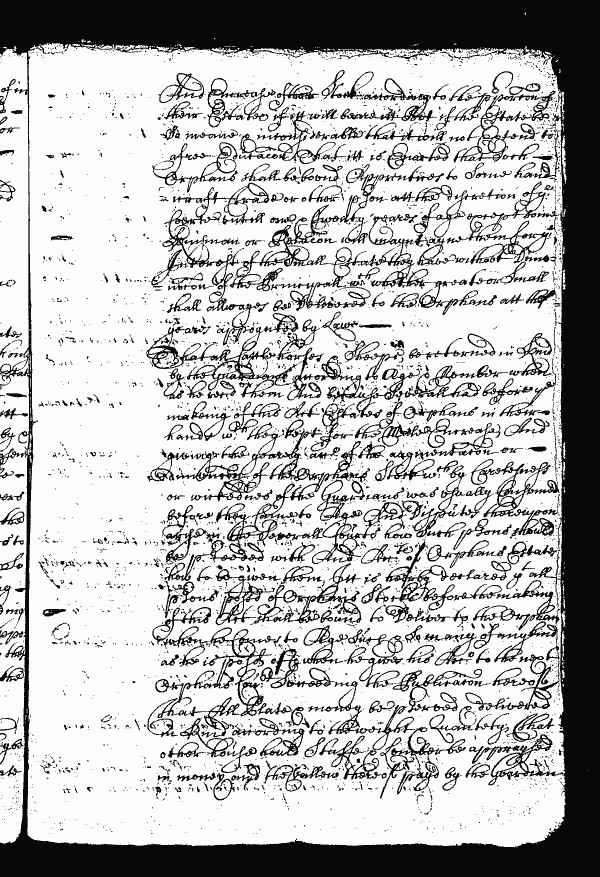 And Encrease of their Stock according to the pporcon of
their Estates if itt will beare itt But if the Estate be
So meane & inconsiderable that it will not Extend to
a free Educacon That itt is Enacted that Such
Orphans shall be bound Apprentices to Some hand
craft trade or other pson att the discretion of ye
Courte untill one & Twenty yeares of age except some
Kinsman or Relacon will maynt ayne them for ye
Interest of the Small Estate they have without Dimi
nucon of the Principall wch whether greate or Small
shall allwayes be Delivered to the Orphans att the
yeares appoynted by Lawe
That all Cattle horses & Sheepe be returned in Kind
by the Guardians according to Age & Number when
as he recd them And because Severall had before ye
makeing of this Act Estates of Orphans in their
hands wch they kept for the Male Encrease And
giveing the yearly acct of the augmentacon or
diminucon of the Orphans Stock wch by Carelesness
or wickednes of the Guardians was usually Consumed
before they Came to Age And Disputes thereupon
arise in the Severall Courts how Such psons should
be pceeded with And Accts of Orphans Estates
how to be given them, Itt is hereby declared yt all
psons possd of Orphans Stocks before the makeing
of this Act shall be bound to Deliver to the Orphan
when he comes to Age Such & so many of any kind
as he is possd of when he gives his Acct to the next
Orphans Court Succeeding the Publicacon hereof
That All Plate & money be pserved & delivered
in Kind according to the weight & Quantety, That
other house hould Stuffe & Lumber be appraysed
in money and the Vallew thereof payd by the Guardian